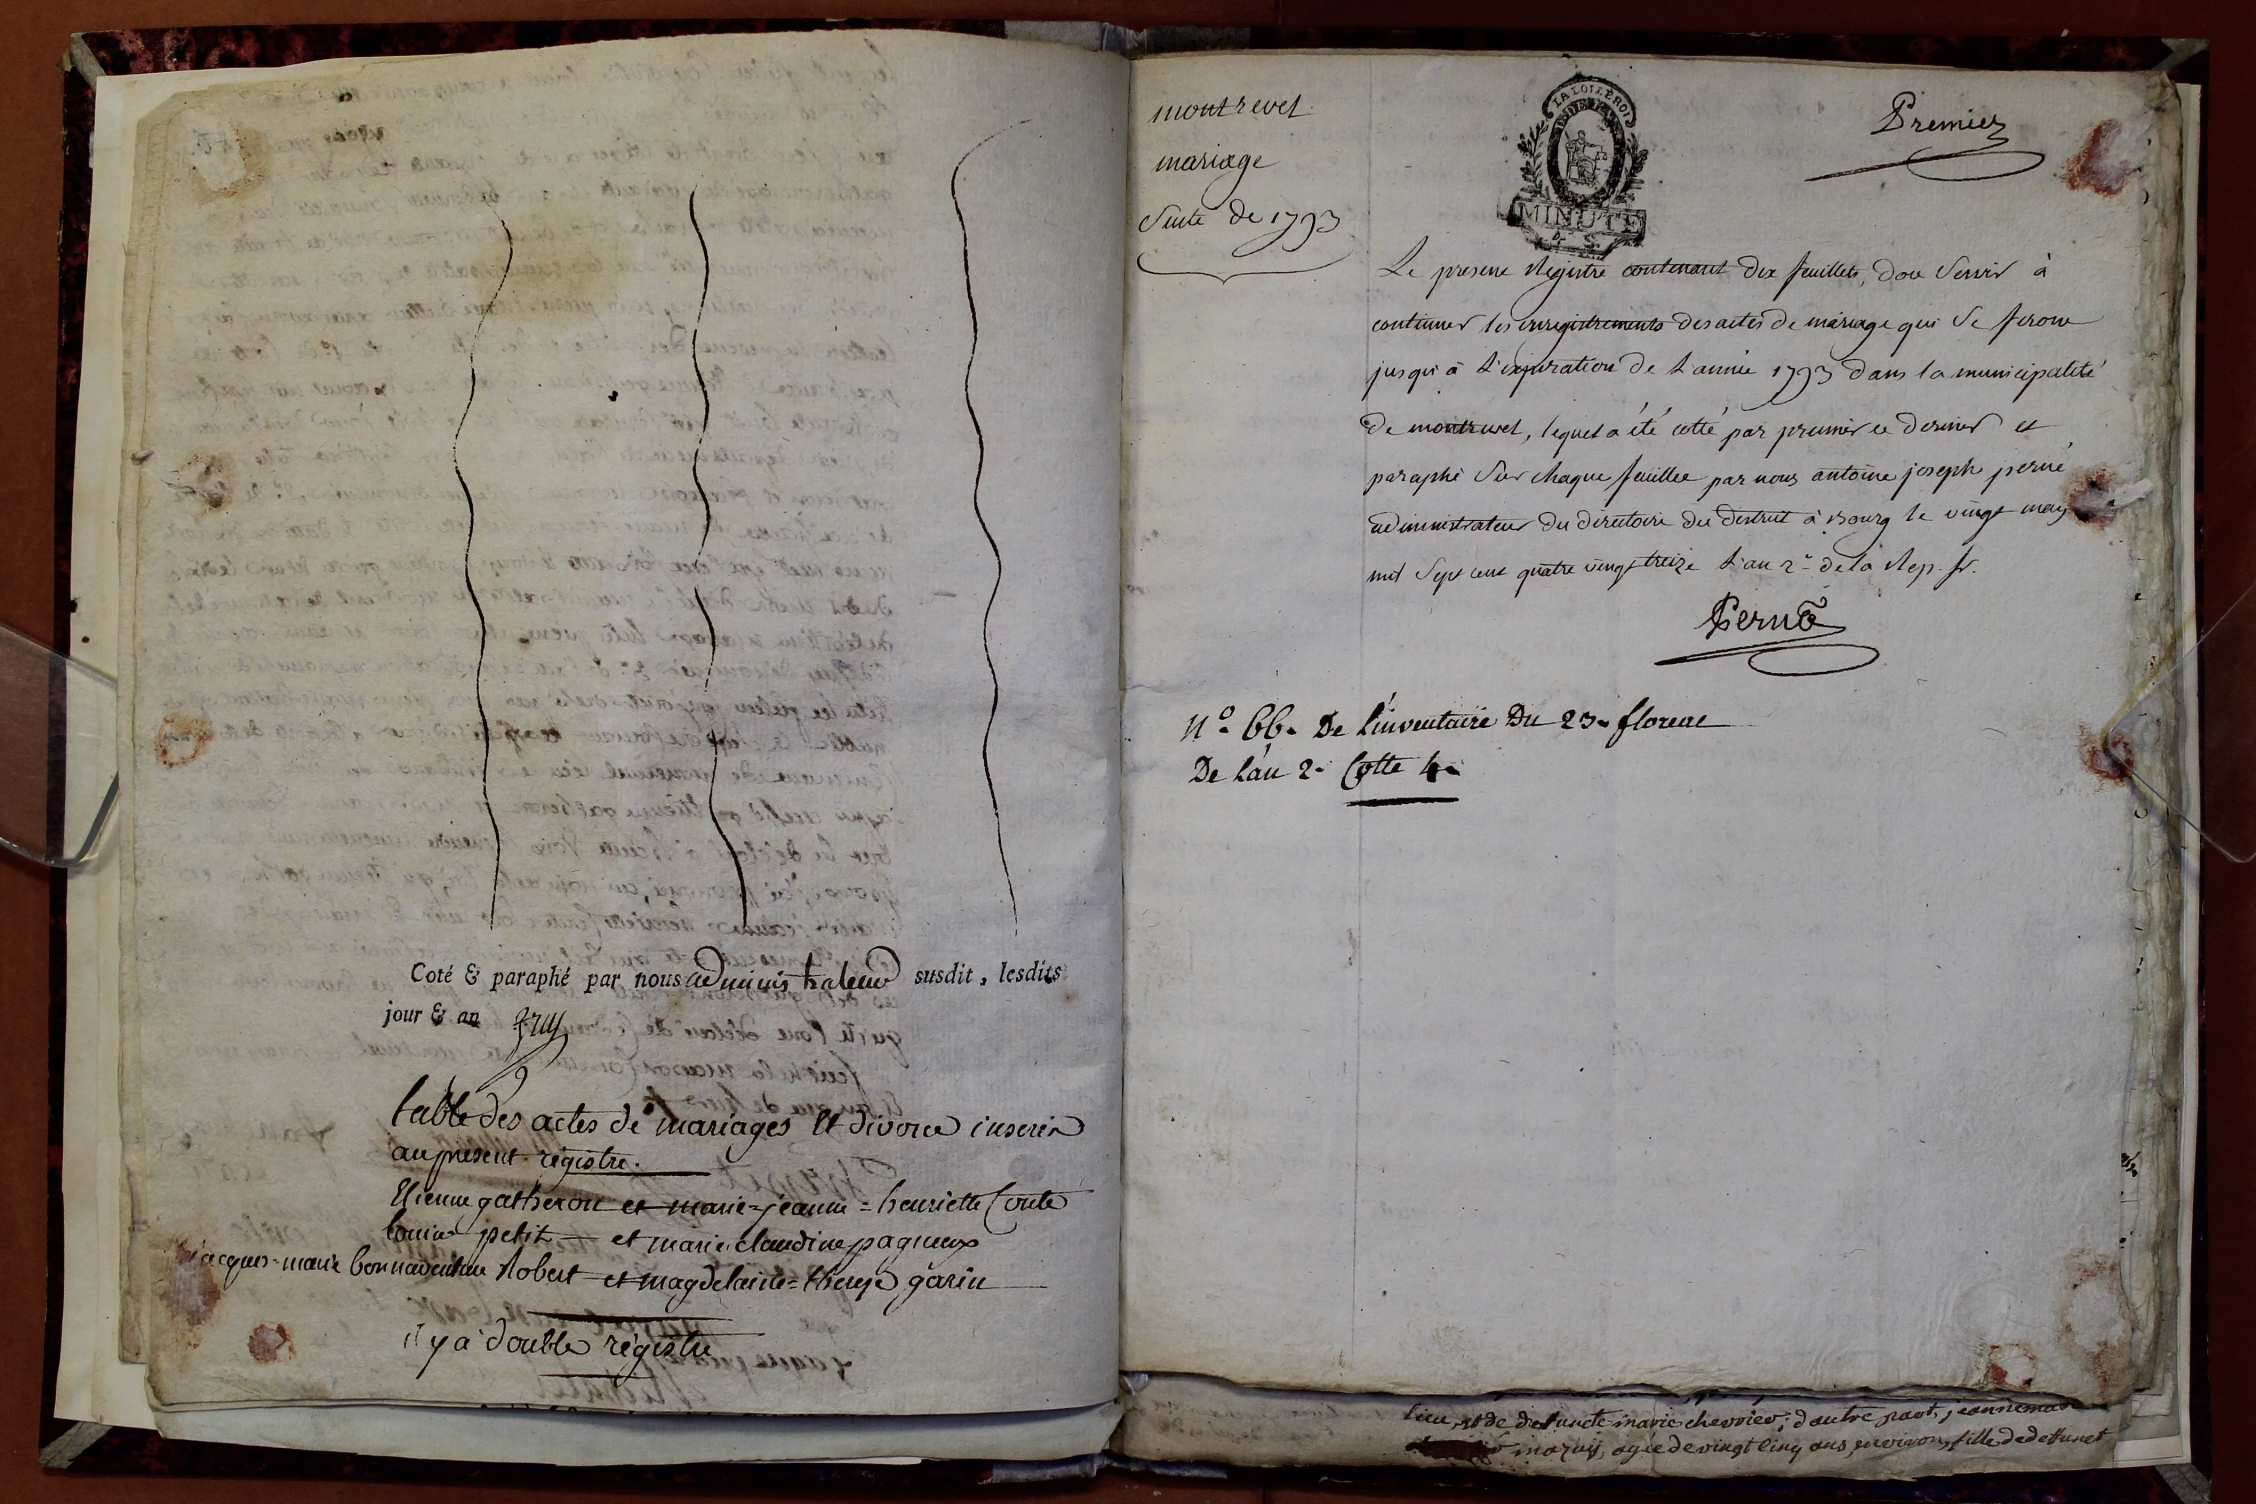 Coté & paraphé par nous administrateur susdit, lesdits
jour & an
table des actes de mariages et divorce inscrits
au present registre.
Etienne gatheron et marie-jeanne-henriette Conte
louis petit et marie claudine pagneux
jacques-marie bonnaventure Robert et magdelaine-therese garin
il y a double régistre
montrevel
mariage
Suite de 1793
LA LOI LE ROI
MINUTE
Premier
Le present Registre contenant dix feuillets, doit Servir à
continuer les enregistrements des actes de mariage qui Se feront
jusqu'à L'expiration de L'année 1793 dans la municipalité
de montrevel, lequel a été cotté par premier et dernier et
paraphé Sur chaque feuillet par nous antoine joseph perné
administrateur du directoire du district à Bourg le vingt may
mil Sept cent quatre vingt treize L'an 2e de la Rep. fr.
Perné
N° 66. De l'inventaire Du 23 floreal
De l'an 2. Cotte 4.
lieu, et de defuncte marie chevrier; d'autre part, jeannemarie
agée de vingt cinq ans environ, fille de deffunct